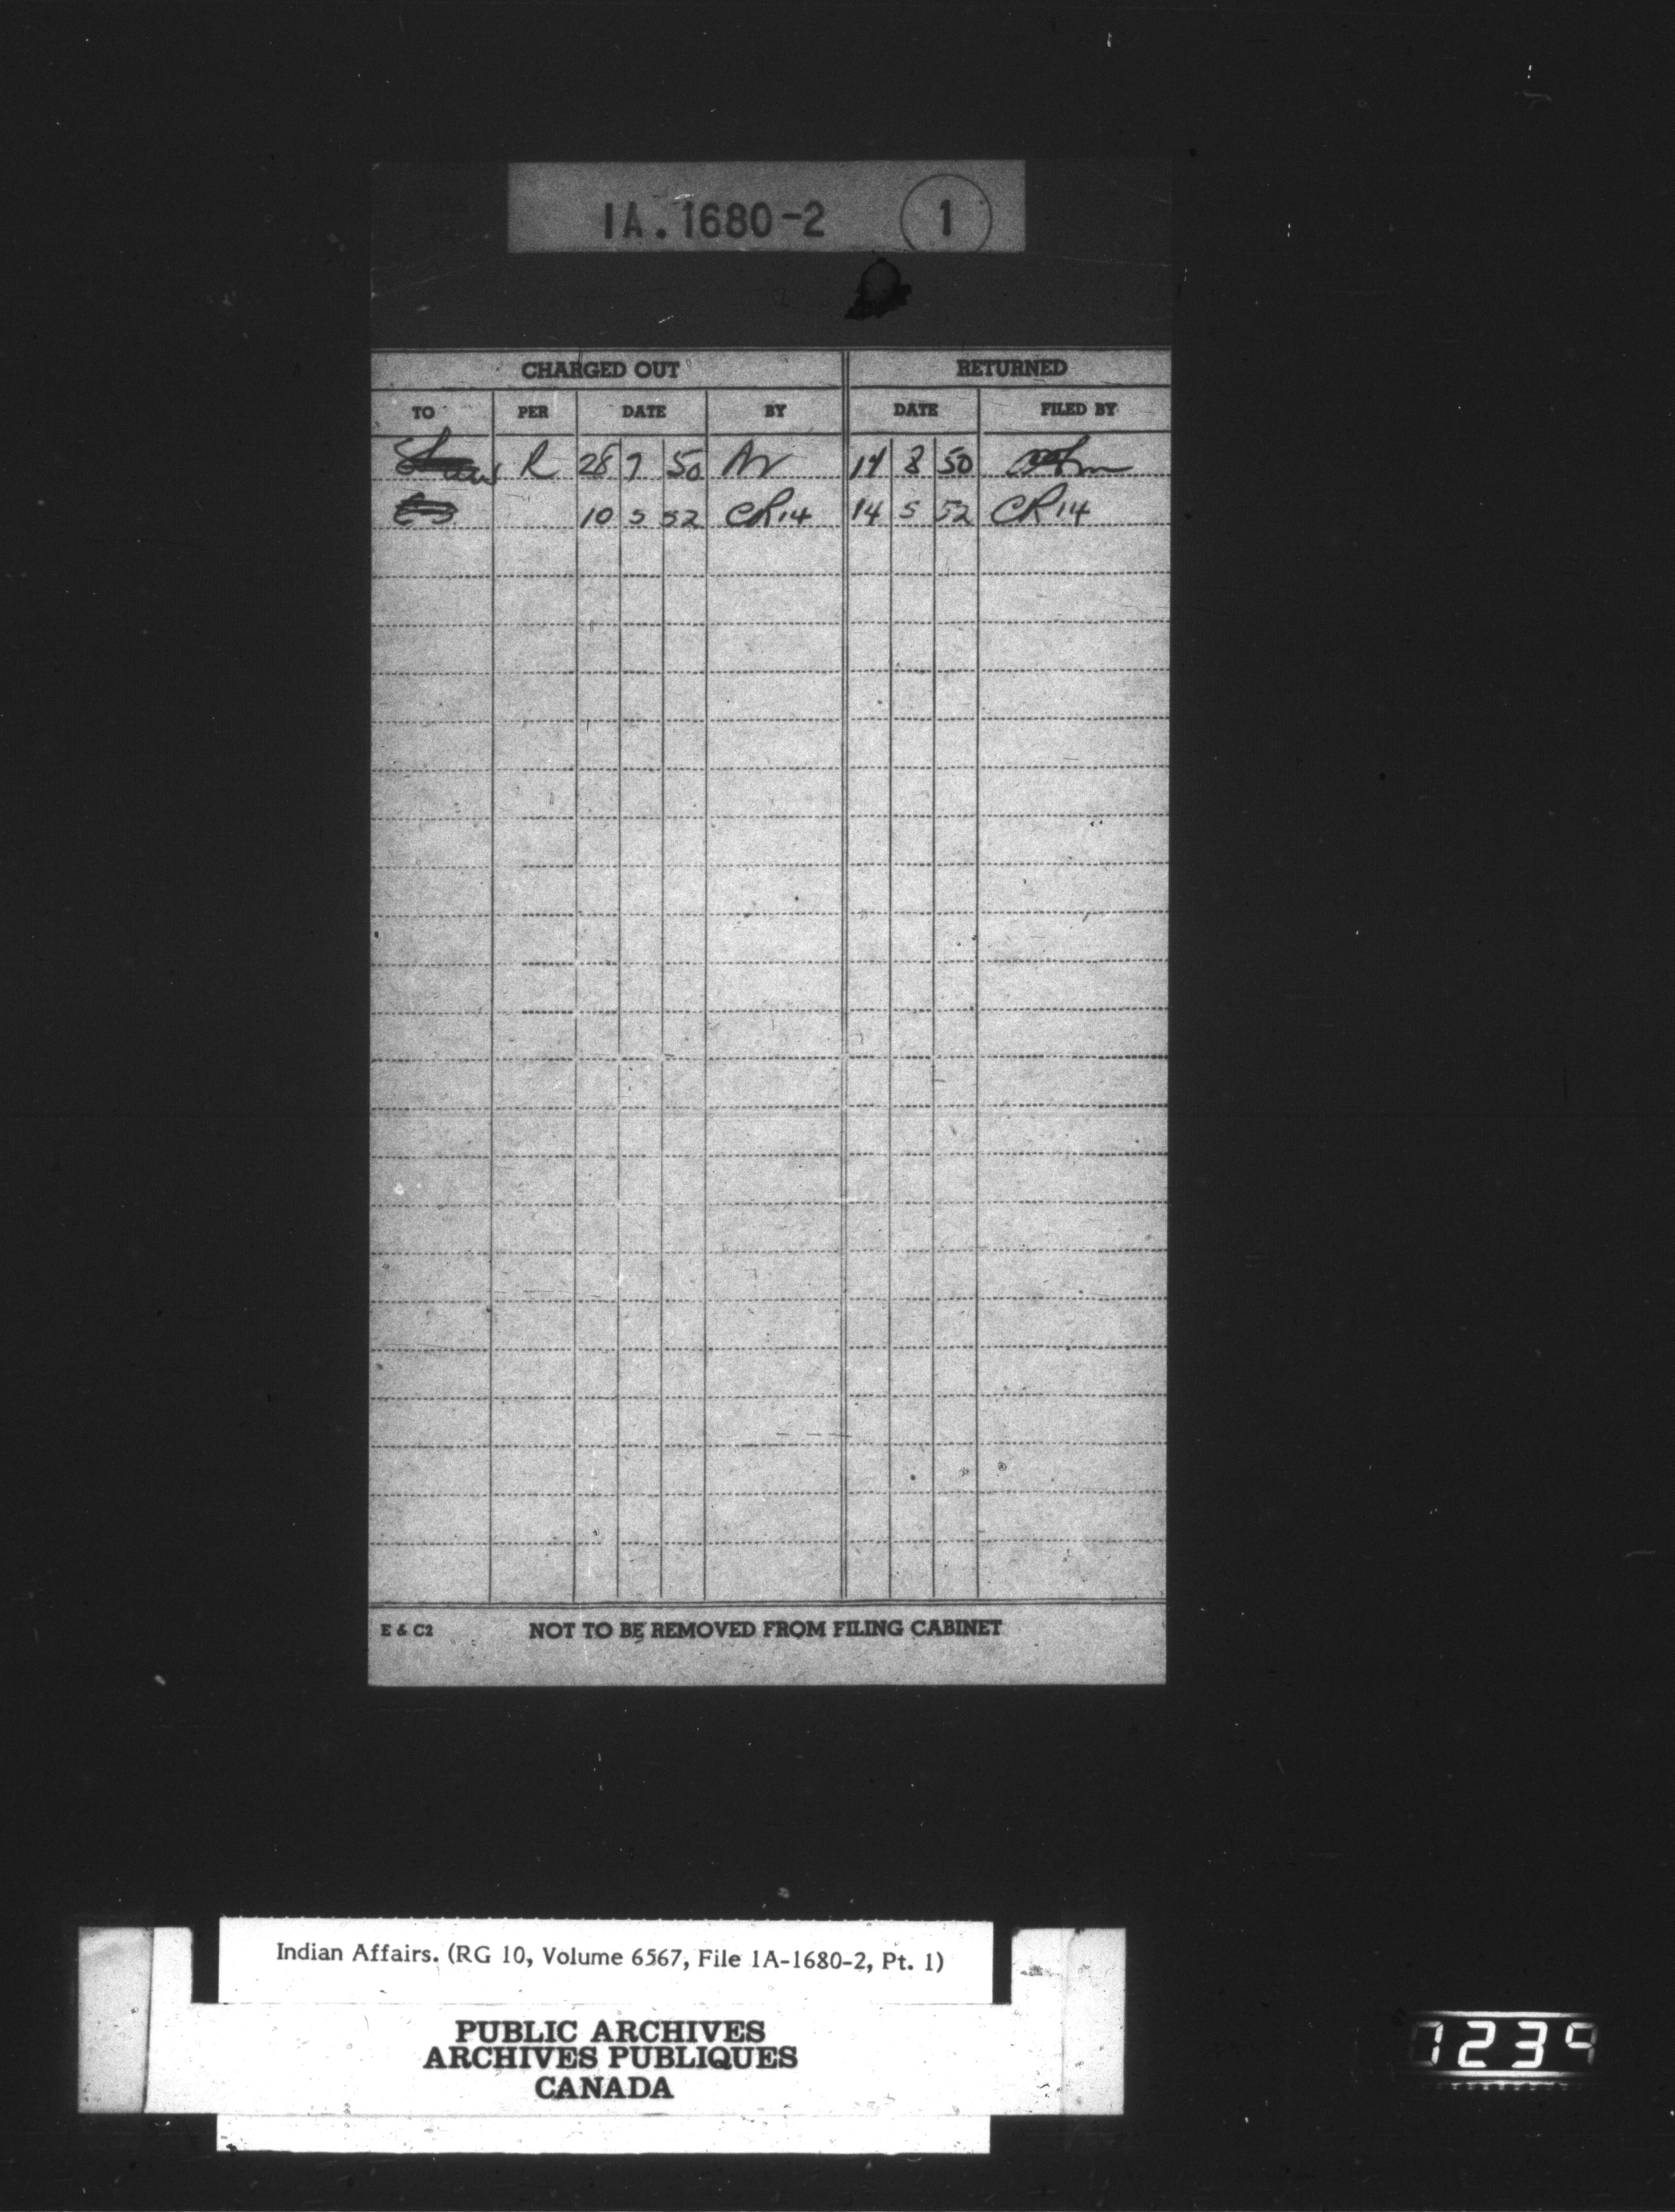 1A.1680-2 1
CHARGED OUT RETURNED
TO PER DATE BY DATE FILED BY
R 28 7 50 14 8 50
10 5 52 CR14 14 5 52 CR14
E & C2 NOT TO BE REMOVED FROM FILING CABINET
Indian Affairs. (RG 10, Volume 6567, File 1A-1680-2, Pt. 1)
PUBLIC ARCHIVES
ARCHIVES PUBLIQUES
CANADA
1239